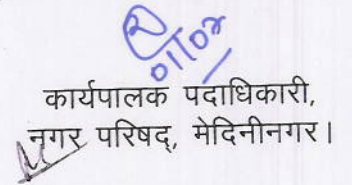 01/02
कार्यपालक पदाधिकारी,
नगर परिषद्, मेदिनीनगर।